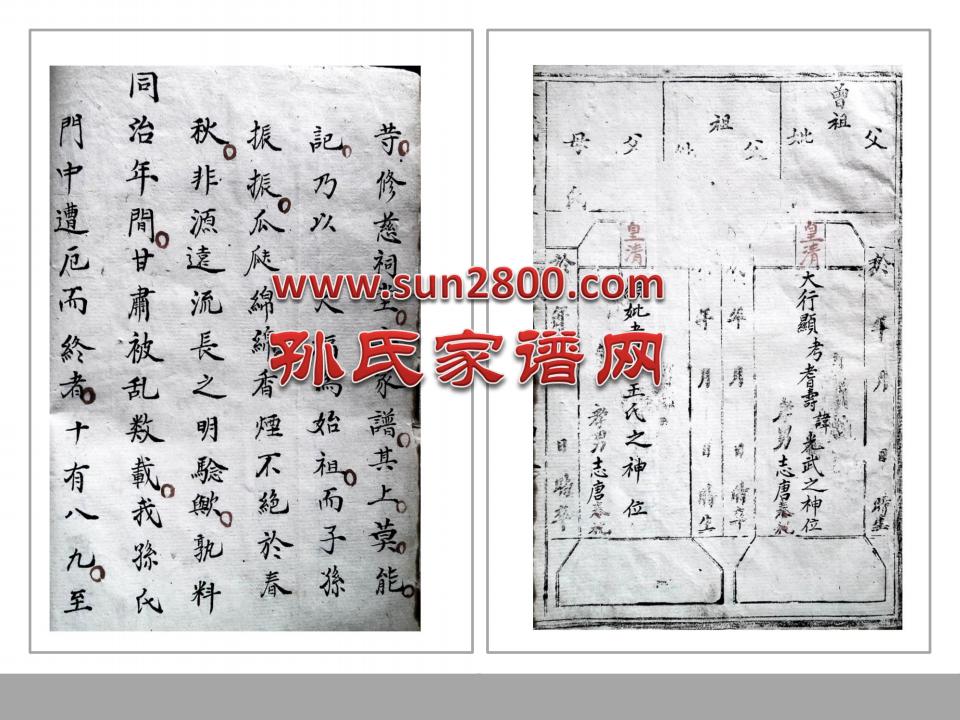 䓁修慈祠坐家譜其上莫能
記乃以人為始祖而子孫
振振瓜瓞綿綿香煙不絕於春
秋非源遠流長之明騐歟孰料
同治年間甘肅被乱数載我孫氏
門中遭厄而終者十有八九至
www.sun2800.com
孙氏家谱网
曾祖
父
妣
祖
公
父
母
氏
皇清
大行顯考耆壽諱光武之神位
孝男志唐奉祀
於年月日時生
年月日時卒
皇清
顯妣王氏之神位
孝男志唐奉祀
年月日時生
於年月日時卒